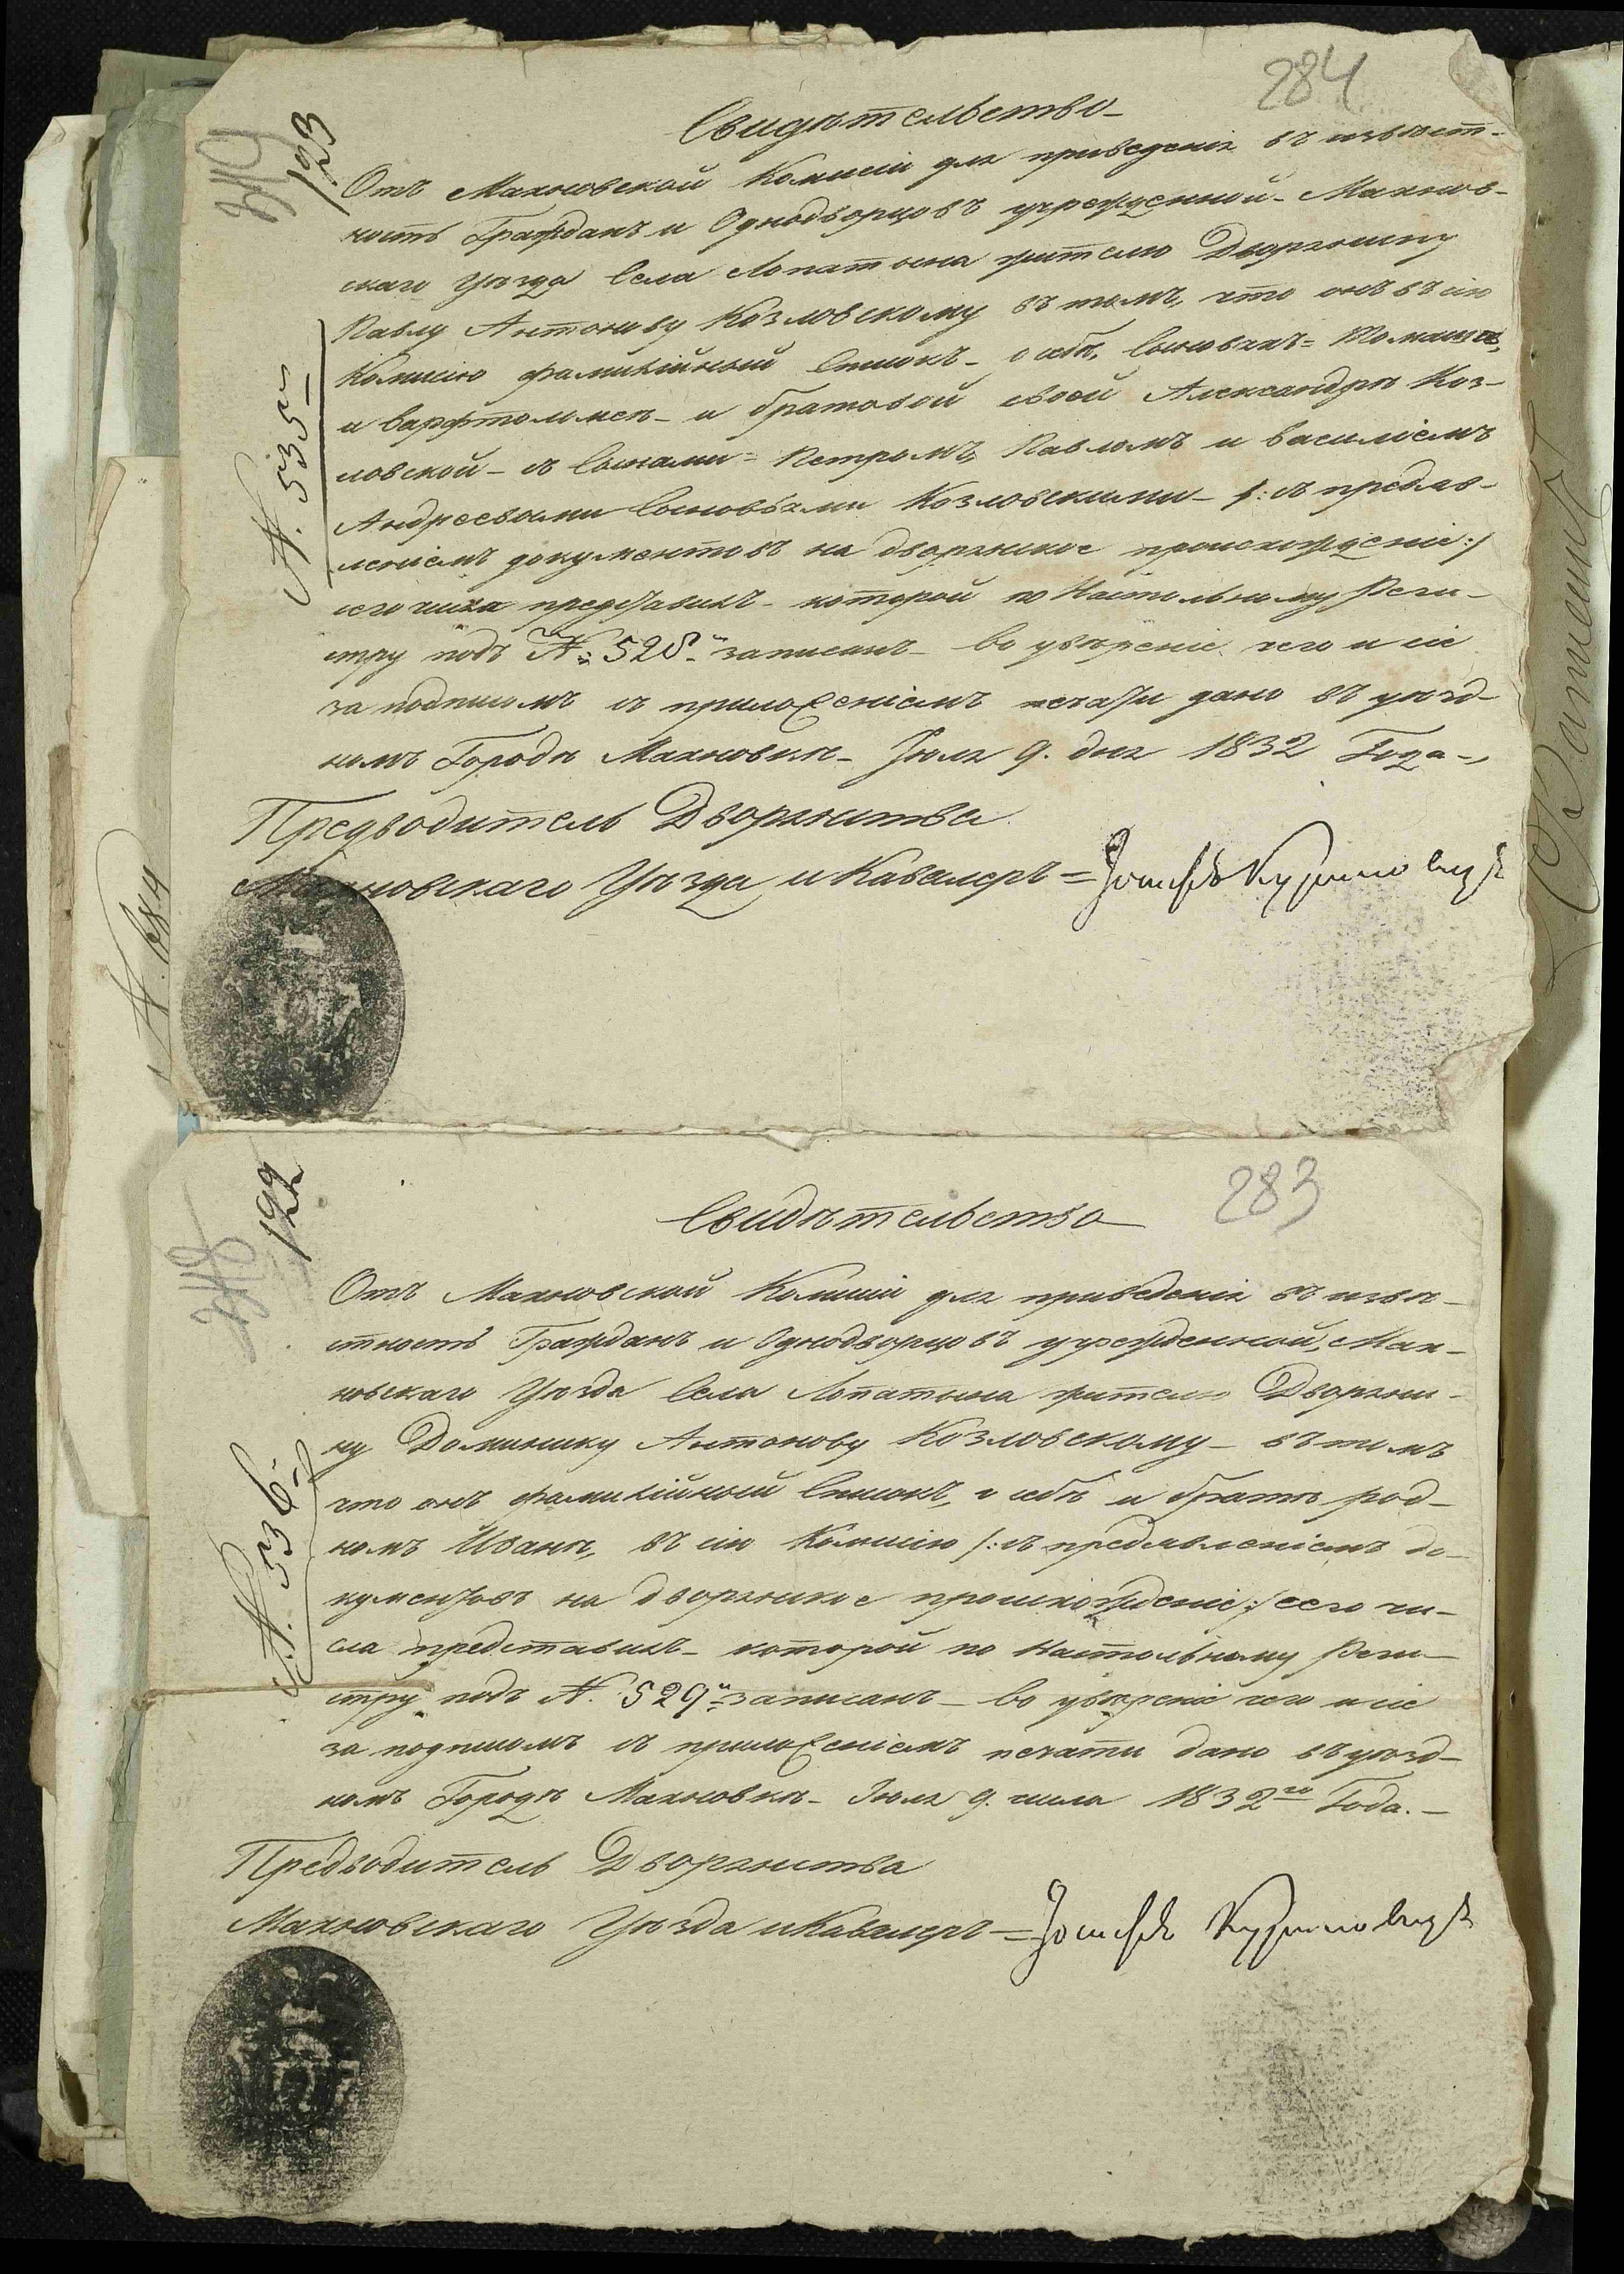 284
349
123
Свидѣтельство
Отъ Махновской Комисіи для приведенія въ извѣст-
ность Гражданъ и Однодворцовъ учрежденной. Махнов-
скаго Уѣзда Села Лопатина жителю Дворянину
Павлу Антонову Козловскому въ томъ, что онъ въ сію
Комисію фамилійный Списокъ о себѣ, Сыновяхъ = Томаше,
и Варфтоломеѣ и братовой своей Александрѣ Коз-
ловской съ Сынами = Петромъ, Павломъ и Василіемъ
Андреевыми Сыновьями Козловскими /: съ предяв-
леніемъ документовъ на дворянское происхожденіе :/
сего числа представилъ которой по Настольному Реги-
стру подъ №: 528. записанъ во увѣреніе чего и сіе
за подписомъ съ приложеніемъ печати дано въ уѣзд-
номъ Городѣ Махновкѣ Іюля 9. дня 1832 Года
Предводитель Дворянства
Махновскаго Уѣзда и Кавалеръ = Іосифъ
№. 535
№. 684
283
348
122
Свидѣтельство
Отъ Махновской Комисіи для приведенія въ извѣ-
стность Гражданъ и Однодворцовъ учрежденной, Мах-
новскаго Уѣзда Села Лопатина жителю Дворяни-
ну Доминику Антонову Козловскому въ томъ
что онъ фамилійный Списокъ, о себѣ и братѣ род-
номъ Иванѣ, въ сію Комисію /: съ предявленіемъ до-
кументовъ на дворянское происхожденіе :/ сего чи-
сла представилъ которой по Настольному Реги-
стру подъ №. 529. записанъ во увѣреніе чего и сіе
за подписомъ съ приложеніемъ печати дано въ уѣзд-
номъ Городѣ Махновкѣ Іюля 9. числа 1832го Года.
Предводитель Дворянства
Махновскаго Уѣзда и Кавалеръ = Іосифъ
№. 536